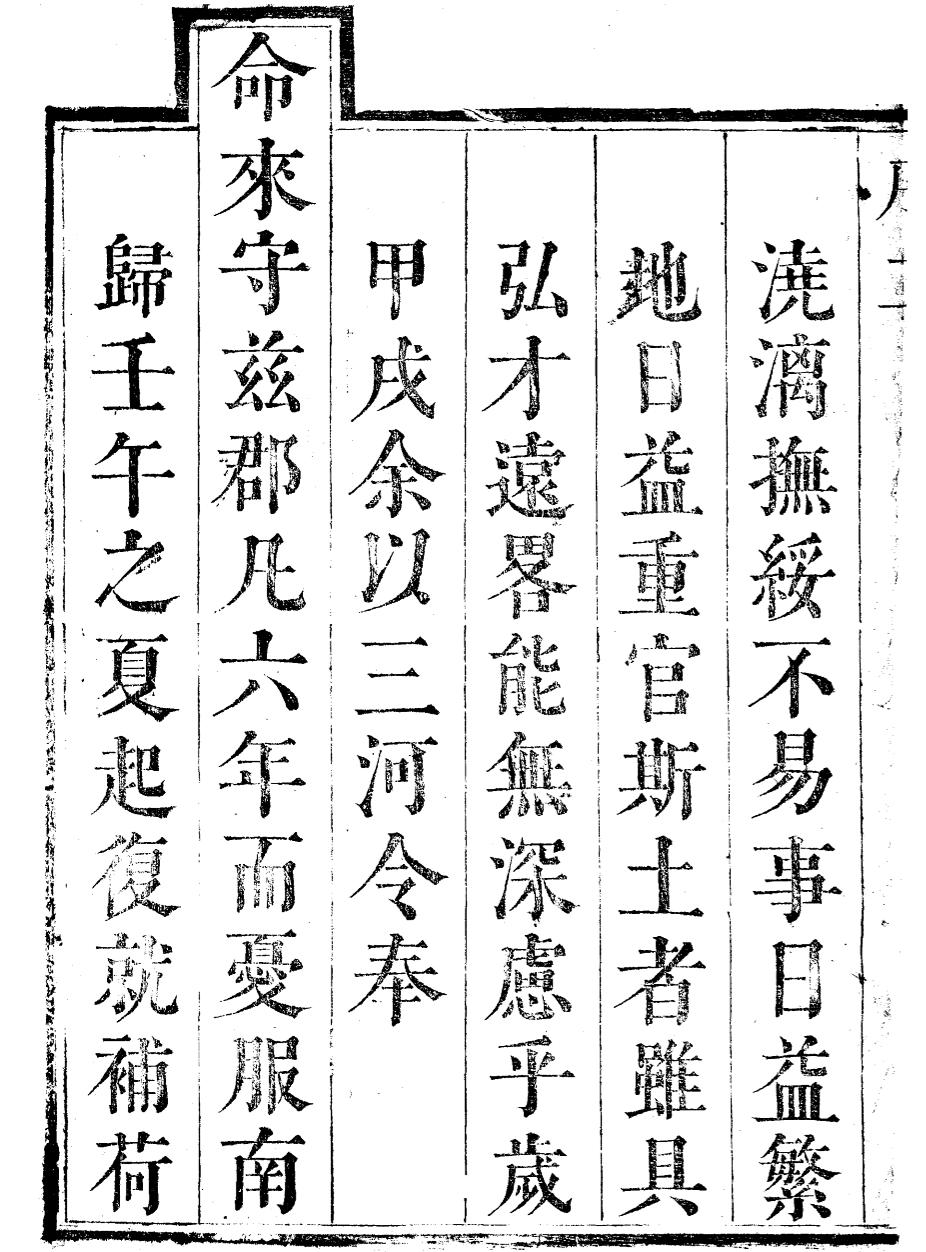 澆漓撫綏不易事日益繁
地日益重官斯土者雖具
弘才遠畧能無深慮乎歲
甲戌余以三河令奉
命來守兹郡凡六年而憂服南
歸壬午之夏起復就補荷